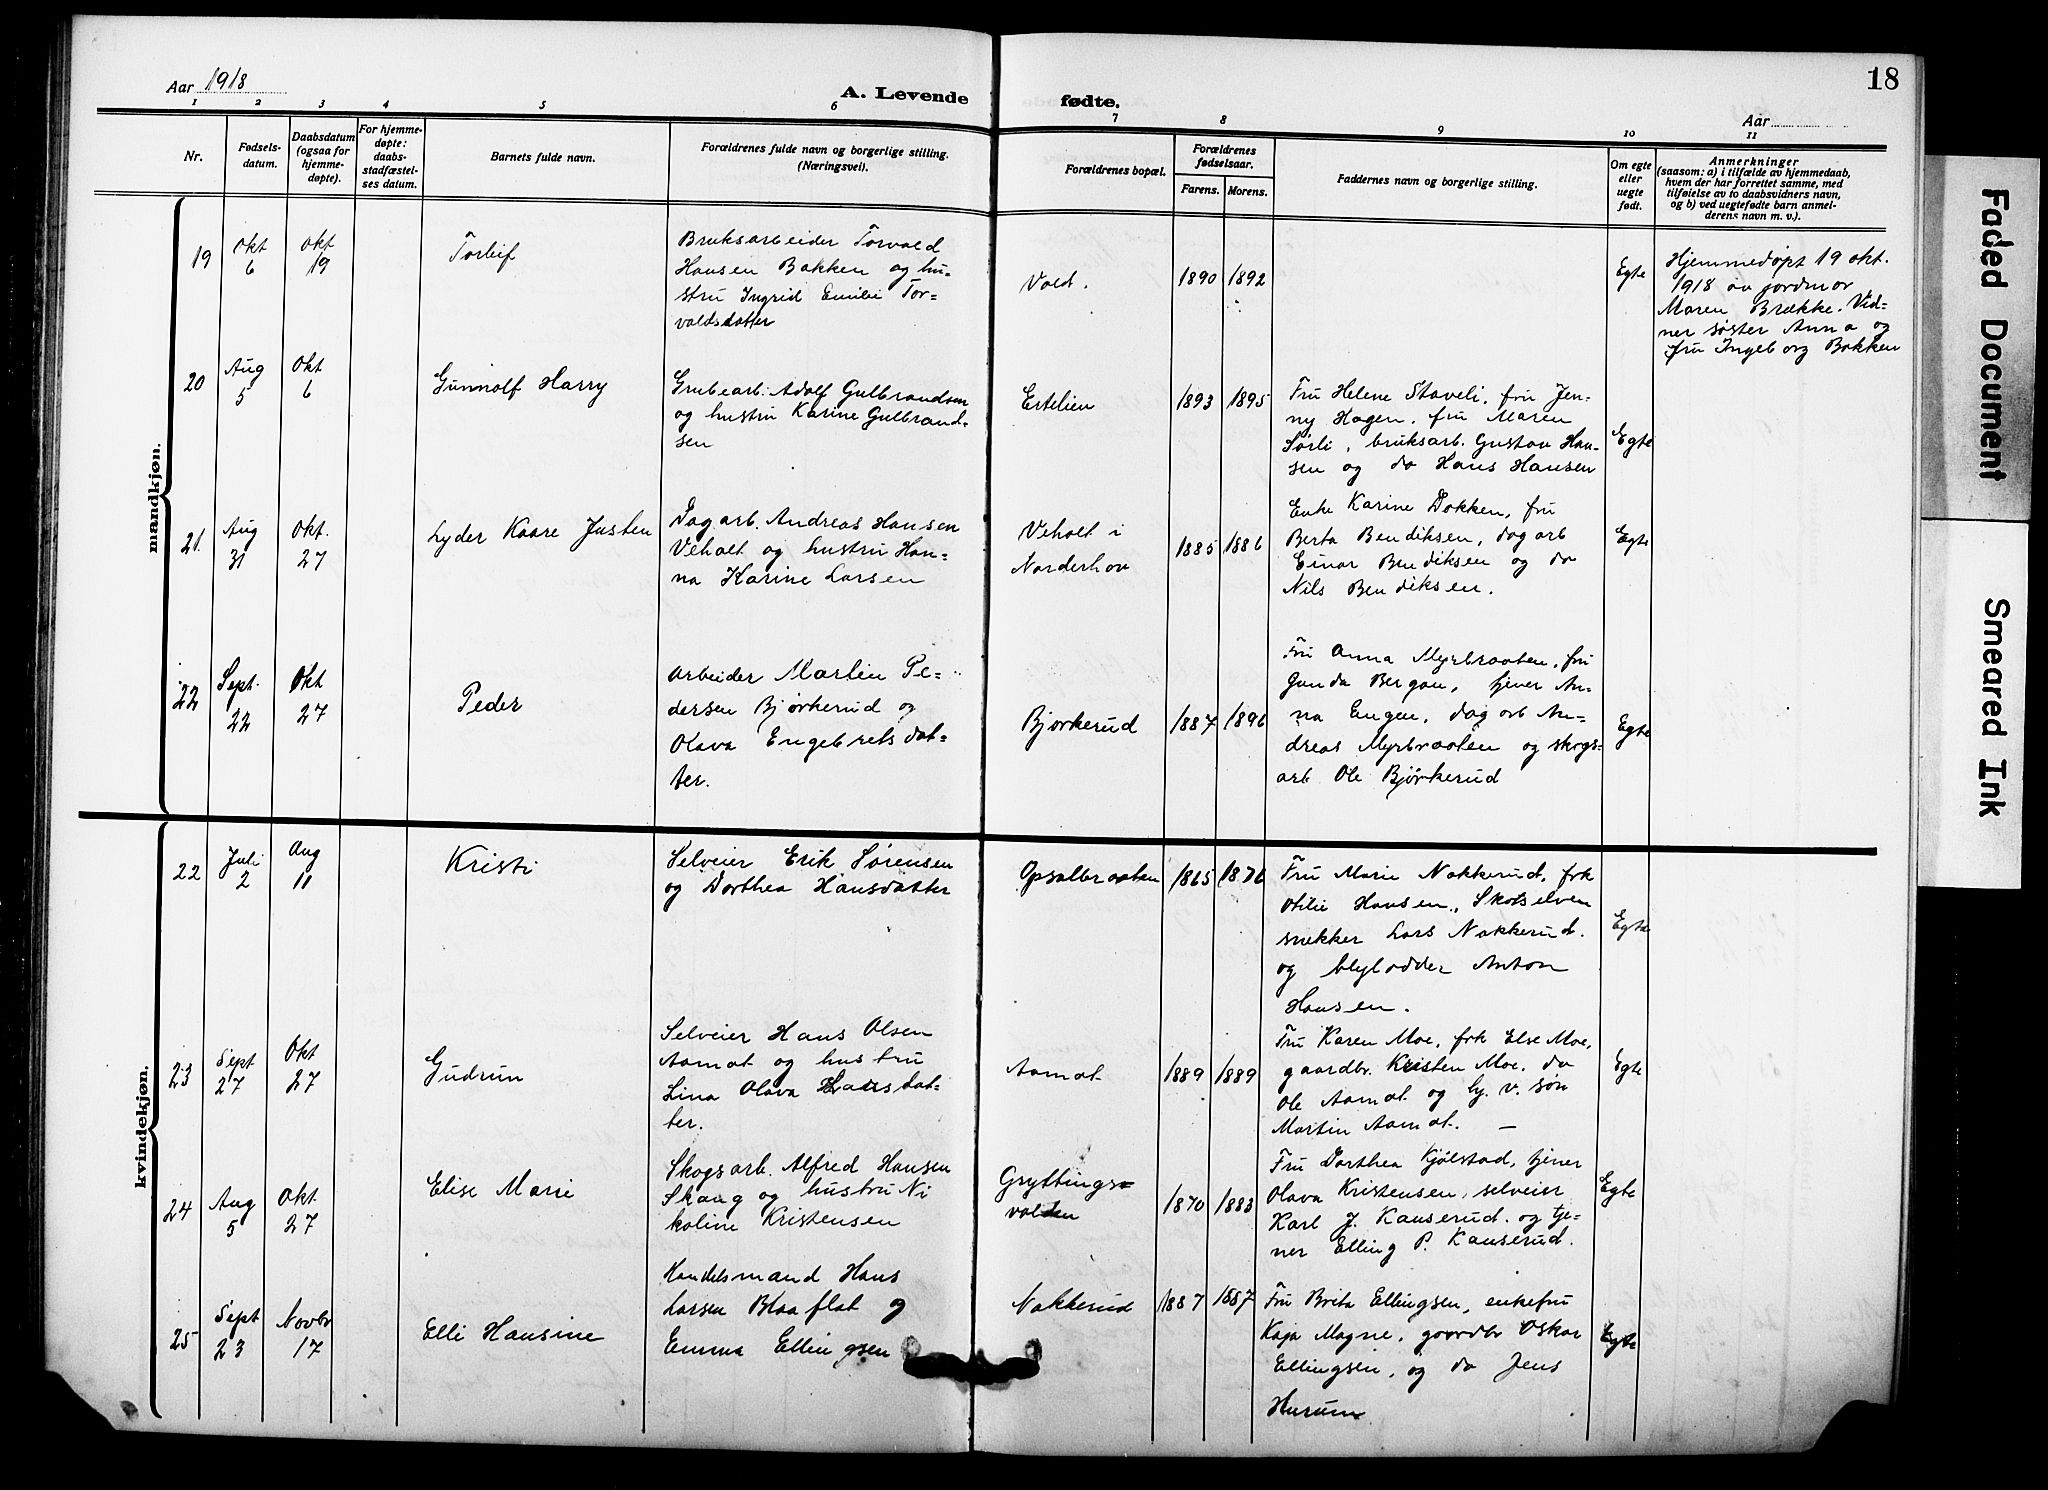 Aar 1918
A. Levende fødte.
18
Aar
1 2 3 4 5 6 7 8 9 10 11
Nr.
Fødsels-
datum.
Daabsdatum
(ogsaa for
hjemme-
døpte).
For hjemme-
døpte:
daabs-
stadfæstel-
ses datum.
Barnets fulde navn.
Forældrenes fulde navn og borgerlige stilling.
(Næringsvei).
Forældrenes bopæl.
Forældrenes
fødselsaar.
Farens. Morens.
Faddernes navn og borgerlige stilling.
Om egte
eller
uegte
født.
Anmerkninger
(saasom: a) i tilfælde av hjemmedaab,
hvem der har forrettet samme, med
tilføielse av to daabsvidners navn,
og b) ved uegtefødte barn anmel-
derens navn m. v.).
mandkjøn.
19
Okt
6
Okt
19
Torleif
Bruksarbeider Torvald
Hansen Bakken og hu-
stru Ingrid Emilie Tor-
valdsdatter
Vold.
1890 1892
Egte
Hjemmedøpt 19 okt.
1918 av jordmor
Maren Brække. Vid-
ner søster Anna og
fru Ingeborg Bakken
20
Aug
5
Okt
6
Gunnolf Harry
Grubearb. Adolf Gulbrandsen
og hustru Karine Gulbrand-
sen
Ertelien
1893 1895
Fru Helene Staveli, fru Jen-
ny Hagen, fru Maren
Sørli, bruksarb. Gustav Han-
sen og do Hans Hansen
Egte
21.
Aug
31
Okt.
27
Lyder Kaare Justen
Dagarb. Andreas Hansen
Veholt og hustru Han-
na Karine Larsen
Veholt i
Norderhov
1885 1886
Enke Karine Dokken, fru
Berta Bendiksen, dagarb
Einar Bendiksen og do
Nils Bendiksen.
Egte
22
Sept.
22
Okt
27
Peder
Arbeider Martin Pe-
dersen Bjørkerud og
Olava Engebretsdat-
ter.
Bjørkerud
1887 1896
Fru Anna Myrbraaten, fru
Gunda Bergan, tjener An-
na Engen, dagarb An-
dreas Myrbraaten og skogs-
arb Ole Bjørkerud
Egte
kvindekjøn.
22
Juli
2
Aug
11
Kristi
Selveier Erik Sørensen
og Dorthea Hansdatter
Opsalbraaten
1865 1876
Fru Marie Nakkerud, frk
Otilie Hansen, Skotselven
snekker Lars Nakkerud.
og blylodder Anton
Hansen.
Egte
23
Sept
27
Okt
27
Gudrun
Selveier Hans Olsen
Aamot og hustru
Lina Olava Hansdat-
ter.
Aamot
1889 1889
Fru Karen Moe, frk Else Moe,
gaardbr. Kristen Moe, do
Ole Aamot og hj. v. søn
Martin Aamot. —
Egte
24
Aug
5
Okt
27
Elise Marie
Skogsarb. Alfred Hansen
Skaug og hustru Ni
koline Kristensen
Gryttings-
valden
1870 1883
Fru Dorthea Kjølstad, tjener
Olava Kristensen, selveier
Karl J. Kauserud. og tje-
ner Elling P. Kauserud.
Egte
25
Sept
23
Novbr
17
Elli Hansine
Handelsmand Hans
Larsen Blaaflat og
Emma Ellingsen
Nakkerud
1887 1887
Fru Brita Ellingsen, enkefru
Kaja Magne, gaardbr Oskar
Ellingsen, og do Jens
Hurum
Egte
Faded Document
Smeared Ink